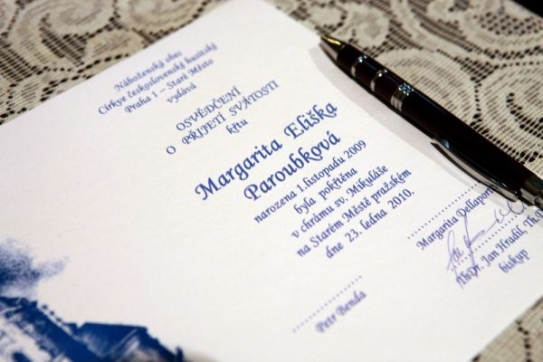 Náboženský obec
Církve československé husitské
Praha 1 – Staré Město
vydává
OSVĚDČENÍ
O PŘIJETÍ SVÁTOSTI
křtu
Margarita Eliška
Paroubková
narozena 1.listopadu 2009
byla pokřtěna
v chrámu sv. Mikuláše
na Starém Městě pražském
dne 23. ledna 2010.
Margarita
ThDr. Jan Hradil,
biskup
Petr Benda